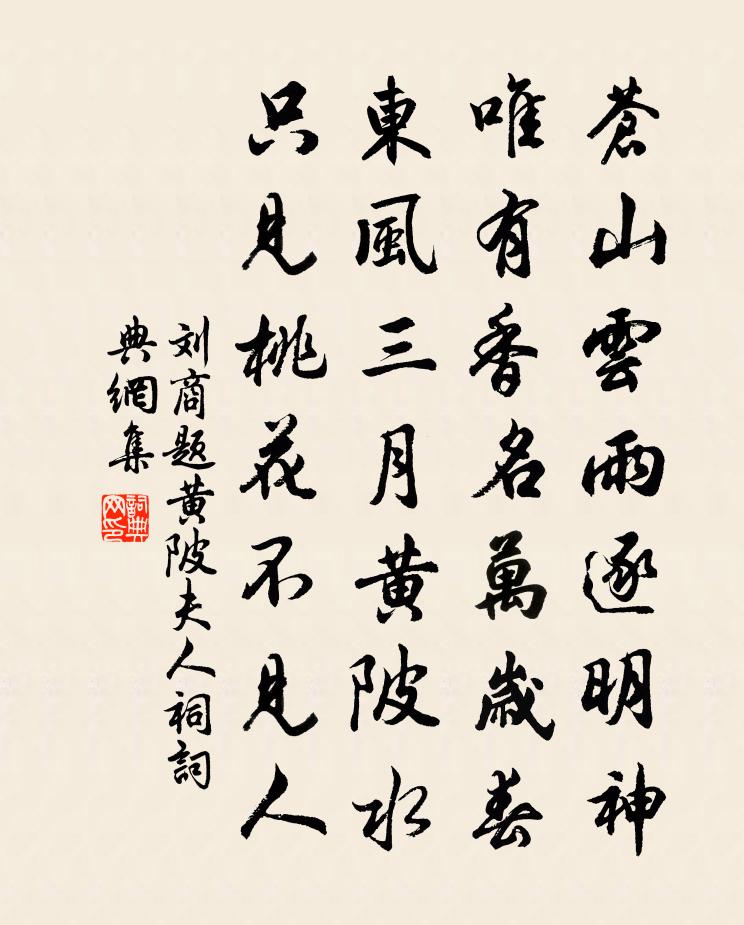 蒼山雲雨逐明神
唯有香名萬歲春
東風三月黄陂水
只見桃花不見人
刘商题黄陂夫人祠詞
典網集
詞典网印